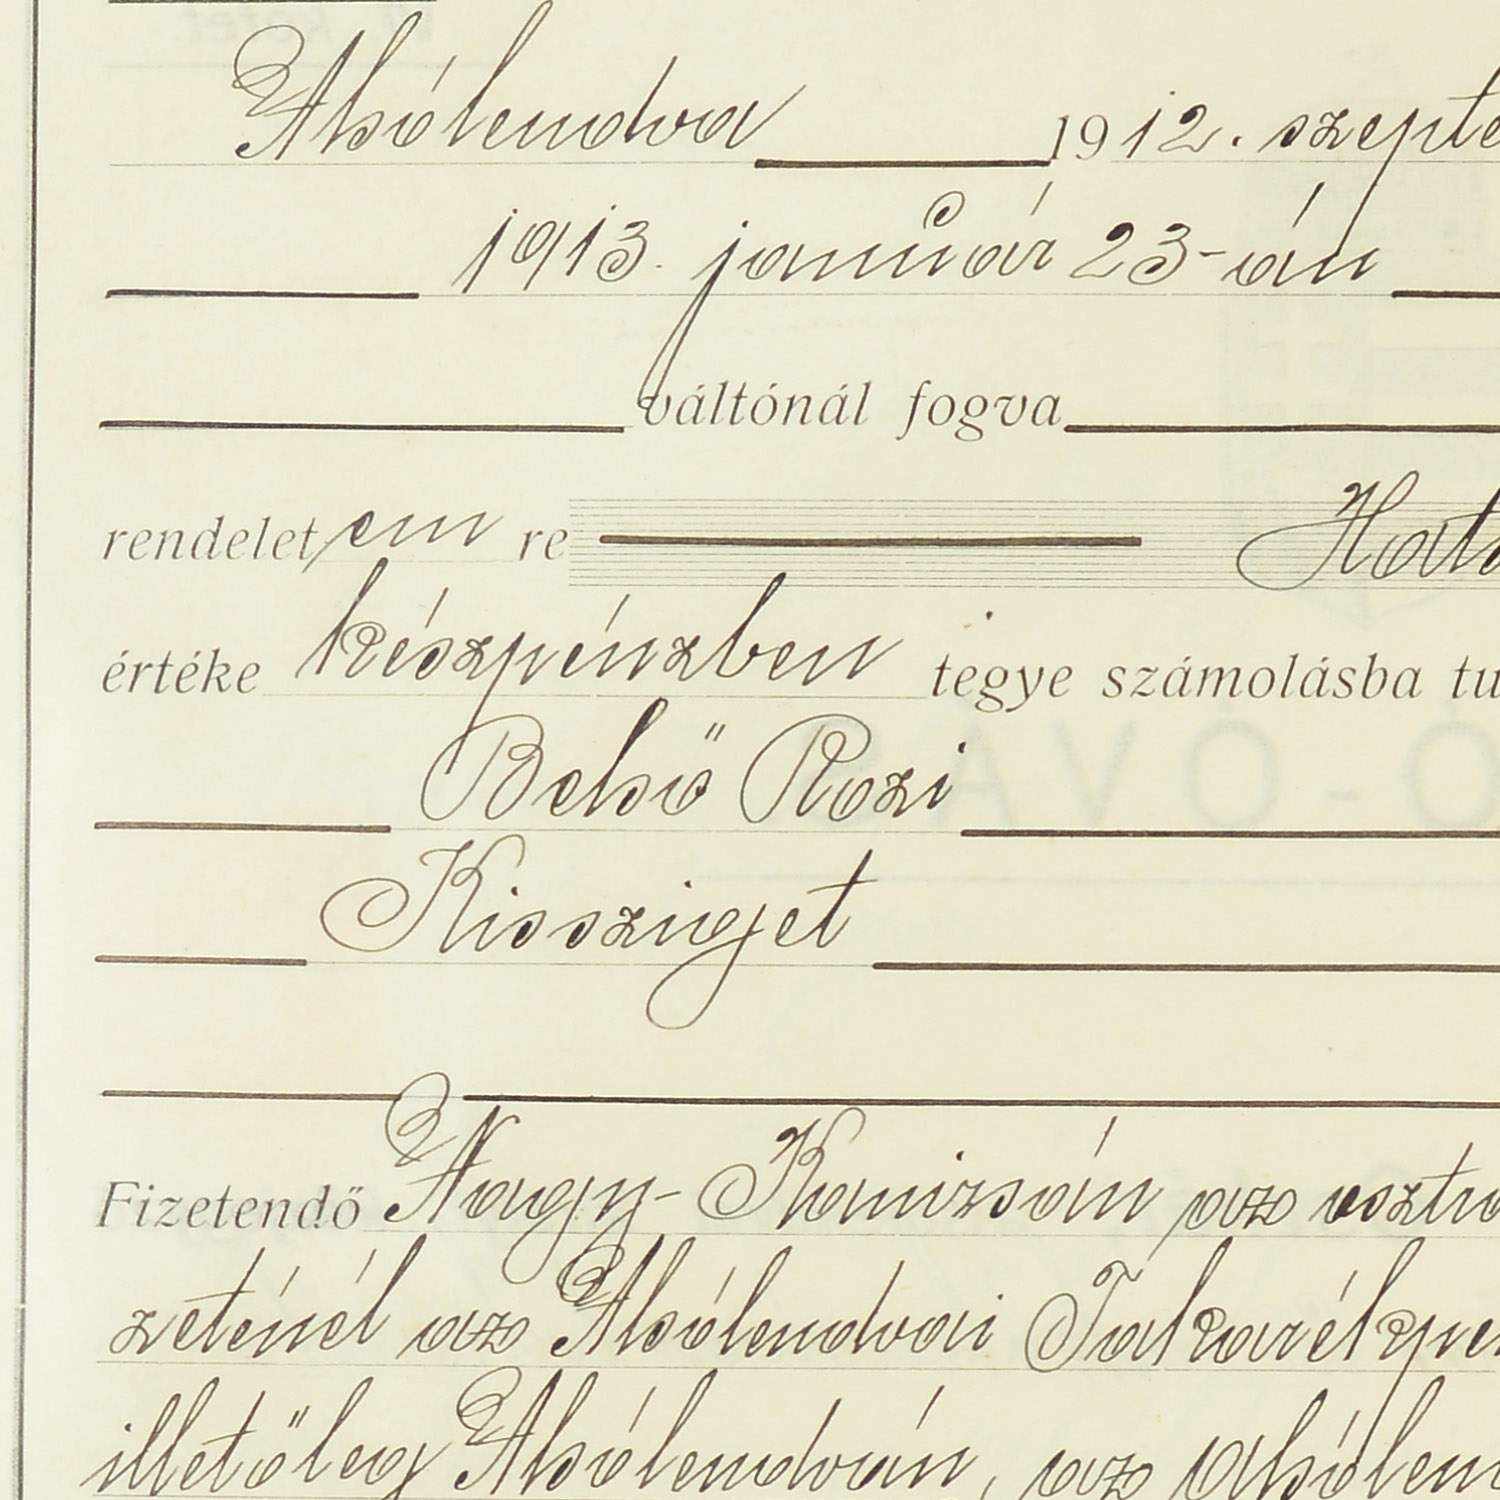 Alsólendva 1912. szepte
1913. január 23-án
váltónál fogva
rendelet em re Hat
értéke készpénzben tegye számolásba tu
Belső Rozi
Kissziget
Fizetendő Nagy-Kanizsán az osztr
zeténél az Alsólendvai Takarékpén
illetőleg Alsólendván, az alsólen